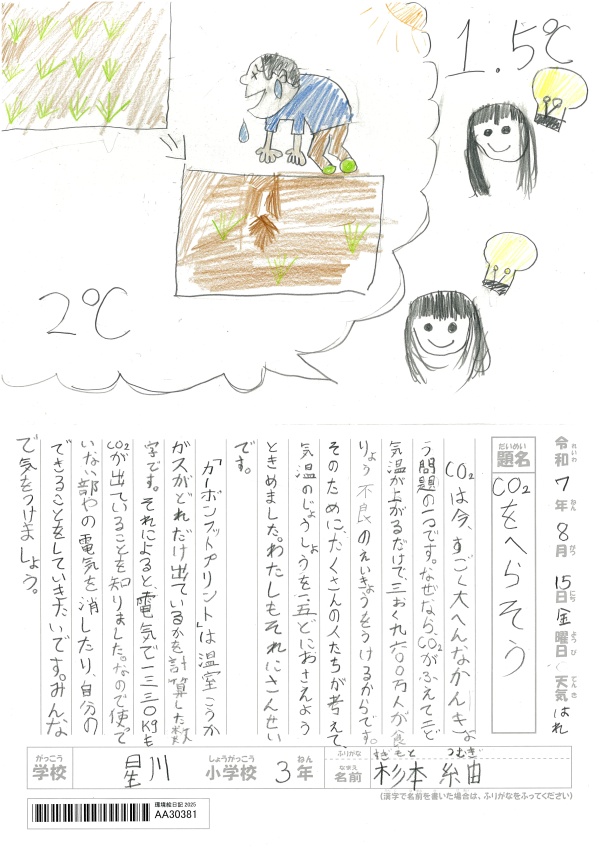 1.5℃
2℃
れいわ
令和7年8月15日金曜日 天気 はれ
だいめい
題名
CO₂をへらそう
CO₂は今、すごく大へんなかんきょ
う問題の一つです。なぜなら、CO₂がふえて二ど
気温が上がるだけで、三おく九六〇〇万人が食
りょう不良のえいきょうをうけるからです。
そのために、たくさんの人たちが考えて、
気温のじょうしょうを一.五どにおさえよう
ときめました。わたしもそれにさんせい
です。
「カーボンフットプリント」は温室こうか
ガスがどれだけ出ているかを計算した数
字です。それによると、電気で一三三〇Kgも
CO₂が出ていることを知りました。なので使って
いない部やの電気を消したり、自分の
できることをしていきたいです。みんな
で気をつけましょう。
がっこう
学校
星川
しょうがっこう
小学校
3年
ふりがな すぎもと つむぎ
なまえ
名前 杉本 紬
(漢字で名前を書いた場合は、ふりがなをふってください)
環境絵日記 2025
AA30381